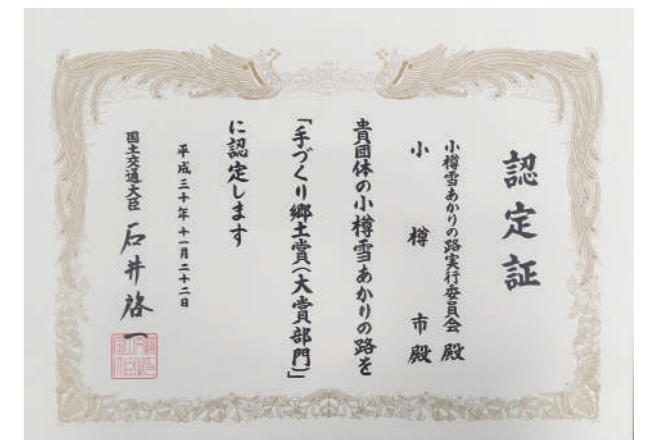 認定証
小樽雪あかりの路実行委員会 殿
小樽市殿
貴団体の小樽雪あかりの路を
「手づくり郷土賞(大賞部門)」
に認定します
平成三十年十一月二十二日
国土交通大臣 石井啓一